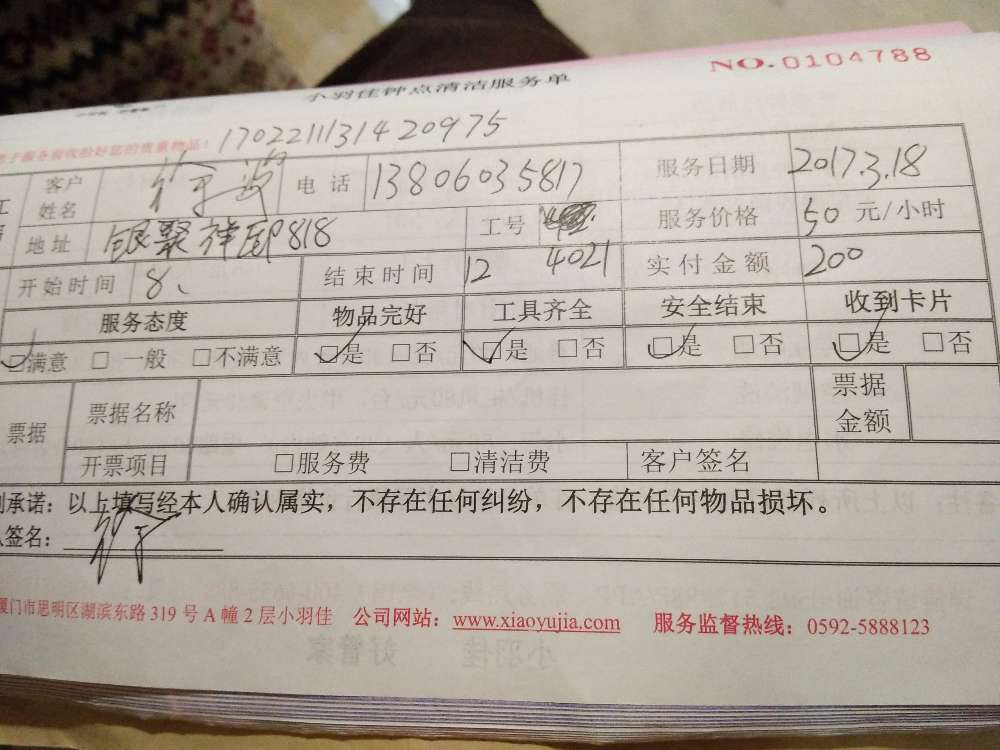 NO.0104788
小羽佳钟点清洁服务单
于服务前收拾好您的贵重物品! 170221131420975
客户姓名 电话 13806035817 服务日期 2017.3.18
地址 银聚祥邸818 工号 4021 服务价格 50 元/小时
开始时间 8、 结束时间 12 实付金额 200
服务态度 物品完好 工具齐全 安全结束 收到卡片
□满意 □一般 □不满意 □是 □否 □是 □否 □是 □否 □是 □否
票据 票据名称 票据金额
开票项目 □服务费 □清洁费 客户签名
承诺：以上填写经本人确认属实，不存在任何纠纷，不存在任何物品损坏。
签名：
厦门市思明区湖滨东路 319 号 A 幢 2 层小羽佳 公司网站：www.xiaoyujia.com 服务监督热线：0592-5888123